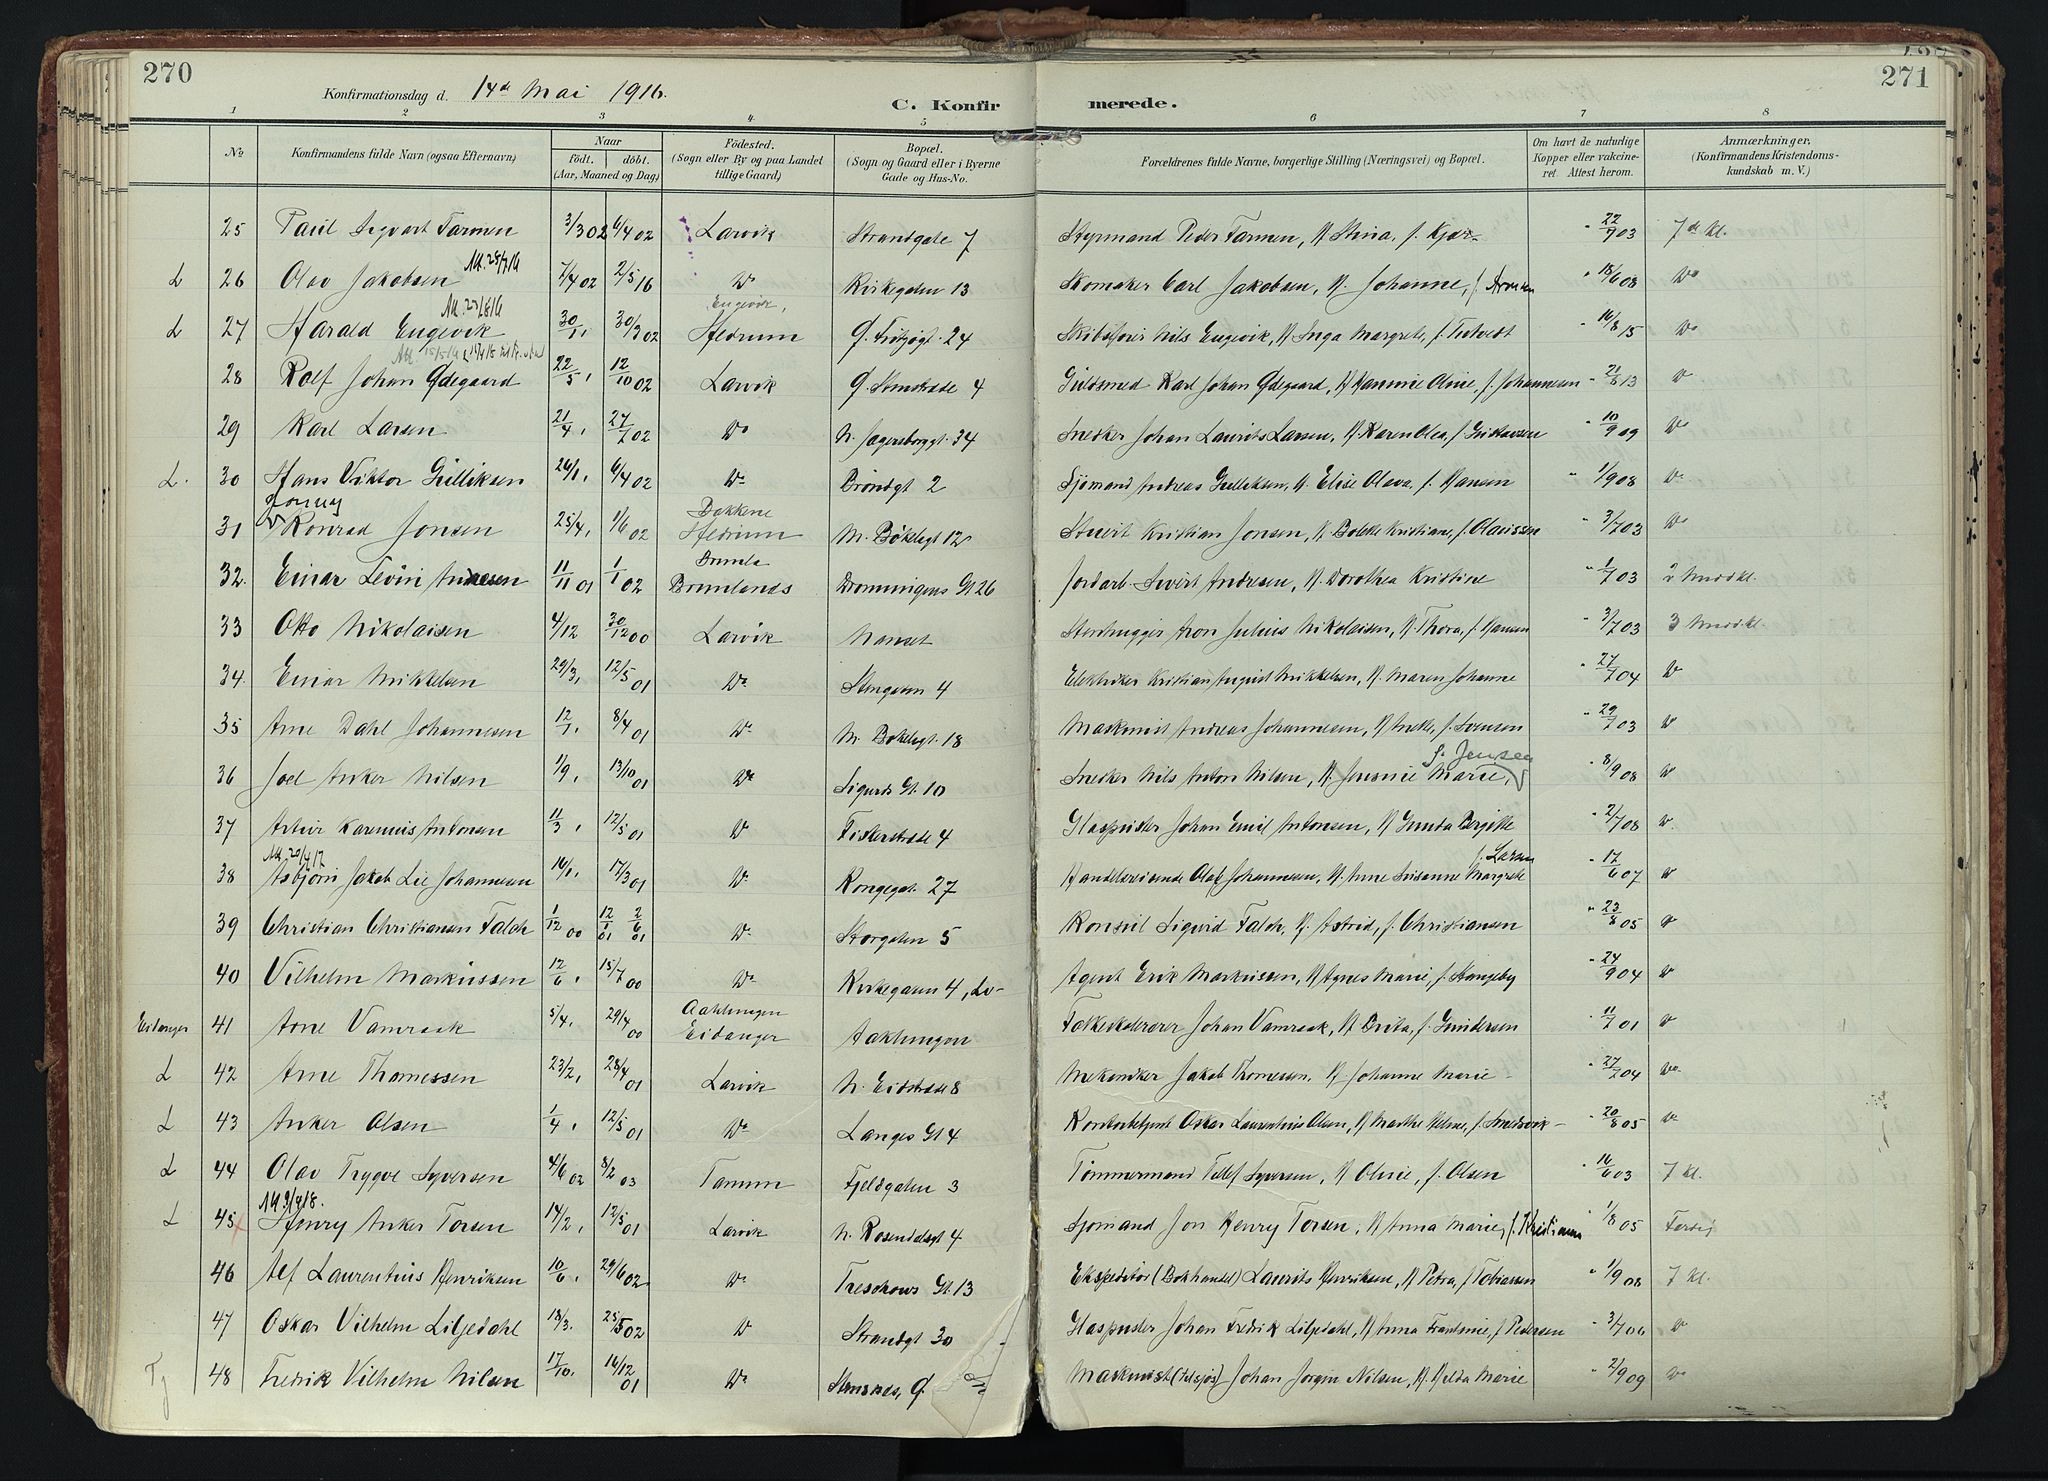 270
271
Konfirmationsdag d. 14de Mai 1916.
C. Konfirmerede.
1 2 3 4. 5 6 7 8
No Konfirmandens fulde Navn (ogsaa Efternavn) Naar født. døbt. (Aar, Maaned og Dag) Fødested. (Sogn eller By og paa Landet tillige Gaard) Bopæl. (Sogn og Gaard eller i Byerne Gade og Hus-No. Forældrenes fulde Navne, borgerlige Stilling (Næringsvei) og Bopæl. Om havt de naturlige Kopper eller vakcineret. Attest herom. Anmærkninger. (Konfirmandens Kristendomskundskab m. V.)
25 Paul Sigvart Farmen 3/3 02 6/4 02 Larvik Strandgate 7 Styrmand Peder Farmen, H. Stina, f. Kjær- " 22/9 03 7de kl.
Att. 25/7 16
L 26 Olav Jakobsen 7/4 02 2/5 16 Do Kirkegaten 13 Skomaker Carl Jakobsen, H. Johanne, f. Aronsen " 18/6 08 Do
Engevik,
L 27 Harald Engevik 30/1, 30/3 02 Hedrum Skibsfører Nils Engevik, H. Inga Margrete, f. Tvetvedt " 16/8 15 Do
28 Rolf Johan Ødegaard 22/5, 12/10 02 Larvik Ø. Stenstrade 4 Guldsmed Karl Johan Ødegaard, H. Hannine Oline, f. Johannesen " 21/8 13 Do
29 Karl Larsen 21/4, 27/7 02 Do N. Jegersborggt. 34 Snedker Johan Laurits Larsen, H. Karen Olea, f. Gustavsen " 10/9 09 Do
L. 30 Hans Viktor Gulliksen 26/1, 6/4 02 Do Brøndgt 2 Sjømand Andreas Gulliksen, H. Elise Olava, f. Hansen " 1/9 08 Do
Dokkene
31 Konrad Jonsen 25/4, 1/6 02 Hedrum M. Bøkelgt 12 Stuert Kristian Jonsen, H. Bolette Kristiane, f. Olaussen " 3/7 03 Do
Brunla
32. Einar Levin Andresen 11/11 01 1/1 02 Brunlands Dronningens Gt 26 Jordarb. Sivert Andresen, H. Dorothea Kristine " 1/7 03 2 Middkl.
33 Otto Nikolaisen 4/12 30/12 00 Larvik Nanset Stenhugger Aron Julius Nikolaisen, H. Thora, f. Hansen " 3/7 03 3 Middkl.
34. Einar Mikkelsen 29/3, 12/5 01 Do Stengaten 4 Elektriker Kristian August Mikkelsen, H. Maren Johanne " 27/7 04 Do
35 Arne Dahl Johannesen 12/1, 8/4 01 Do M. Bøkelgt. 18 Maskinist Andreas Johannesen, H. Anette, f. Svensen " 29/7 03 Do
f. Jensen
36 Joel Anker Nilsen 1/9, 13/10 01 Do Sigurds Gt. 10 Snedker Nils Anton Nilsen, H. Jensine Marie, " 8/9 08 Do
37 Artur Karenius Antonsen 11/3, 12/5 01 Do Fiskerstrade 4 Glaspuster Johan Emil Antonsen, H. Gunda Bergitte " 2/7 08 Do
Att. 20/4 17 f. Larsen
38 Asbjørn Jakob Lie Johannesen 16/1, 17/3 01 Do Kongegt. 27 Handelsreisende Olaf Johannesen, H. Anne Susanne Margrete " 17/6 07 Do
39 Christian Christiansen Falch 1/12 00 12/1 01 2/6 01 Do Storgaten 5 Konsul Sigvid Falch, H. Astrid, f. Christiansen " 23/8 05 Do
40 Vilhelm Markussen 12/6, 15/7 00 Do Kirkegaten 4, Agent Erik Markussen, H. Agnes Marie, f. Stangeby " 24/9 04 Do
Aaklungen
Eidanger 41 Arne Vamraak 5/4, 29/4 00 Eidanger Aaklungen Folkeskolelærer Johan Vamraak, H. Brita, f. Gundersen " 11/7 01 Do
L 42 Arne Thomessen 23/2, 28/4 01 Larvik N. Eidstrade 8 Mekaniker Jakob Thomessen, H. Johanne Marie - " 27/7 04 Do
L 43 Anker Olsen 1/4, 12/5 01 Do Langes Gt 4 Kontorbetjent Oskar Laurentius Olsen, H. Marthe Helene, f. Smedsvik - " 20/8 05 Do
L 44 Olav Trygve Syversen 4/6 02 8/2 03 Tanum Fjeldgaten 3 Tømmermand Tellef Syversen, H. Oline, f. Olsen " 16/6 03 7 kl.
Att. 9/4 18.
L 45 Henry Anker Torsen 14/2, 12/5 01 Larvik N. Rosendalsgt 4 Sjømand Jon Henry Torsen, H. Anna Marie, f. Kristiansen " 1/8 05
46 Alf Laurentius Henriksen 10/6, 29/6 02 Do Treschows Gt. 13 Ekspeditør (Bokhandel) Laurits Henriksen, H. Petra, f. Tobiassen " 1/9 08 7 kl.
47 Oskar Vilhelm Liljedahl 18/3. 25/5 02 Do Strandgt 30 Glaspuster Johan Fredrik Liljedahl, H. Anna Frantsine, f. Pedersen " 3/7 06 Do
Tj 48 Fredrik Vilhelm Nilsen 17/10. 16/12 01 Do Stensnes, Ø. Maskinist (tilsjøs) Johan Jørgen Nilsen, H. Helda Marie " 2/9 09 Do